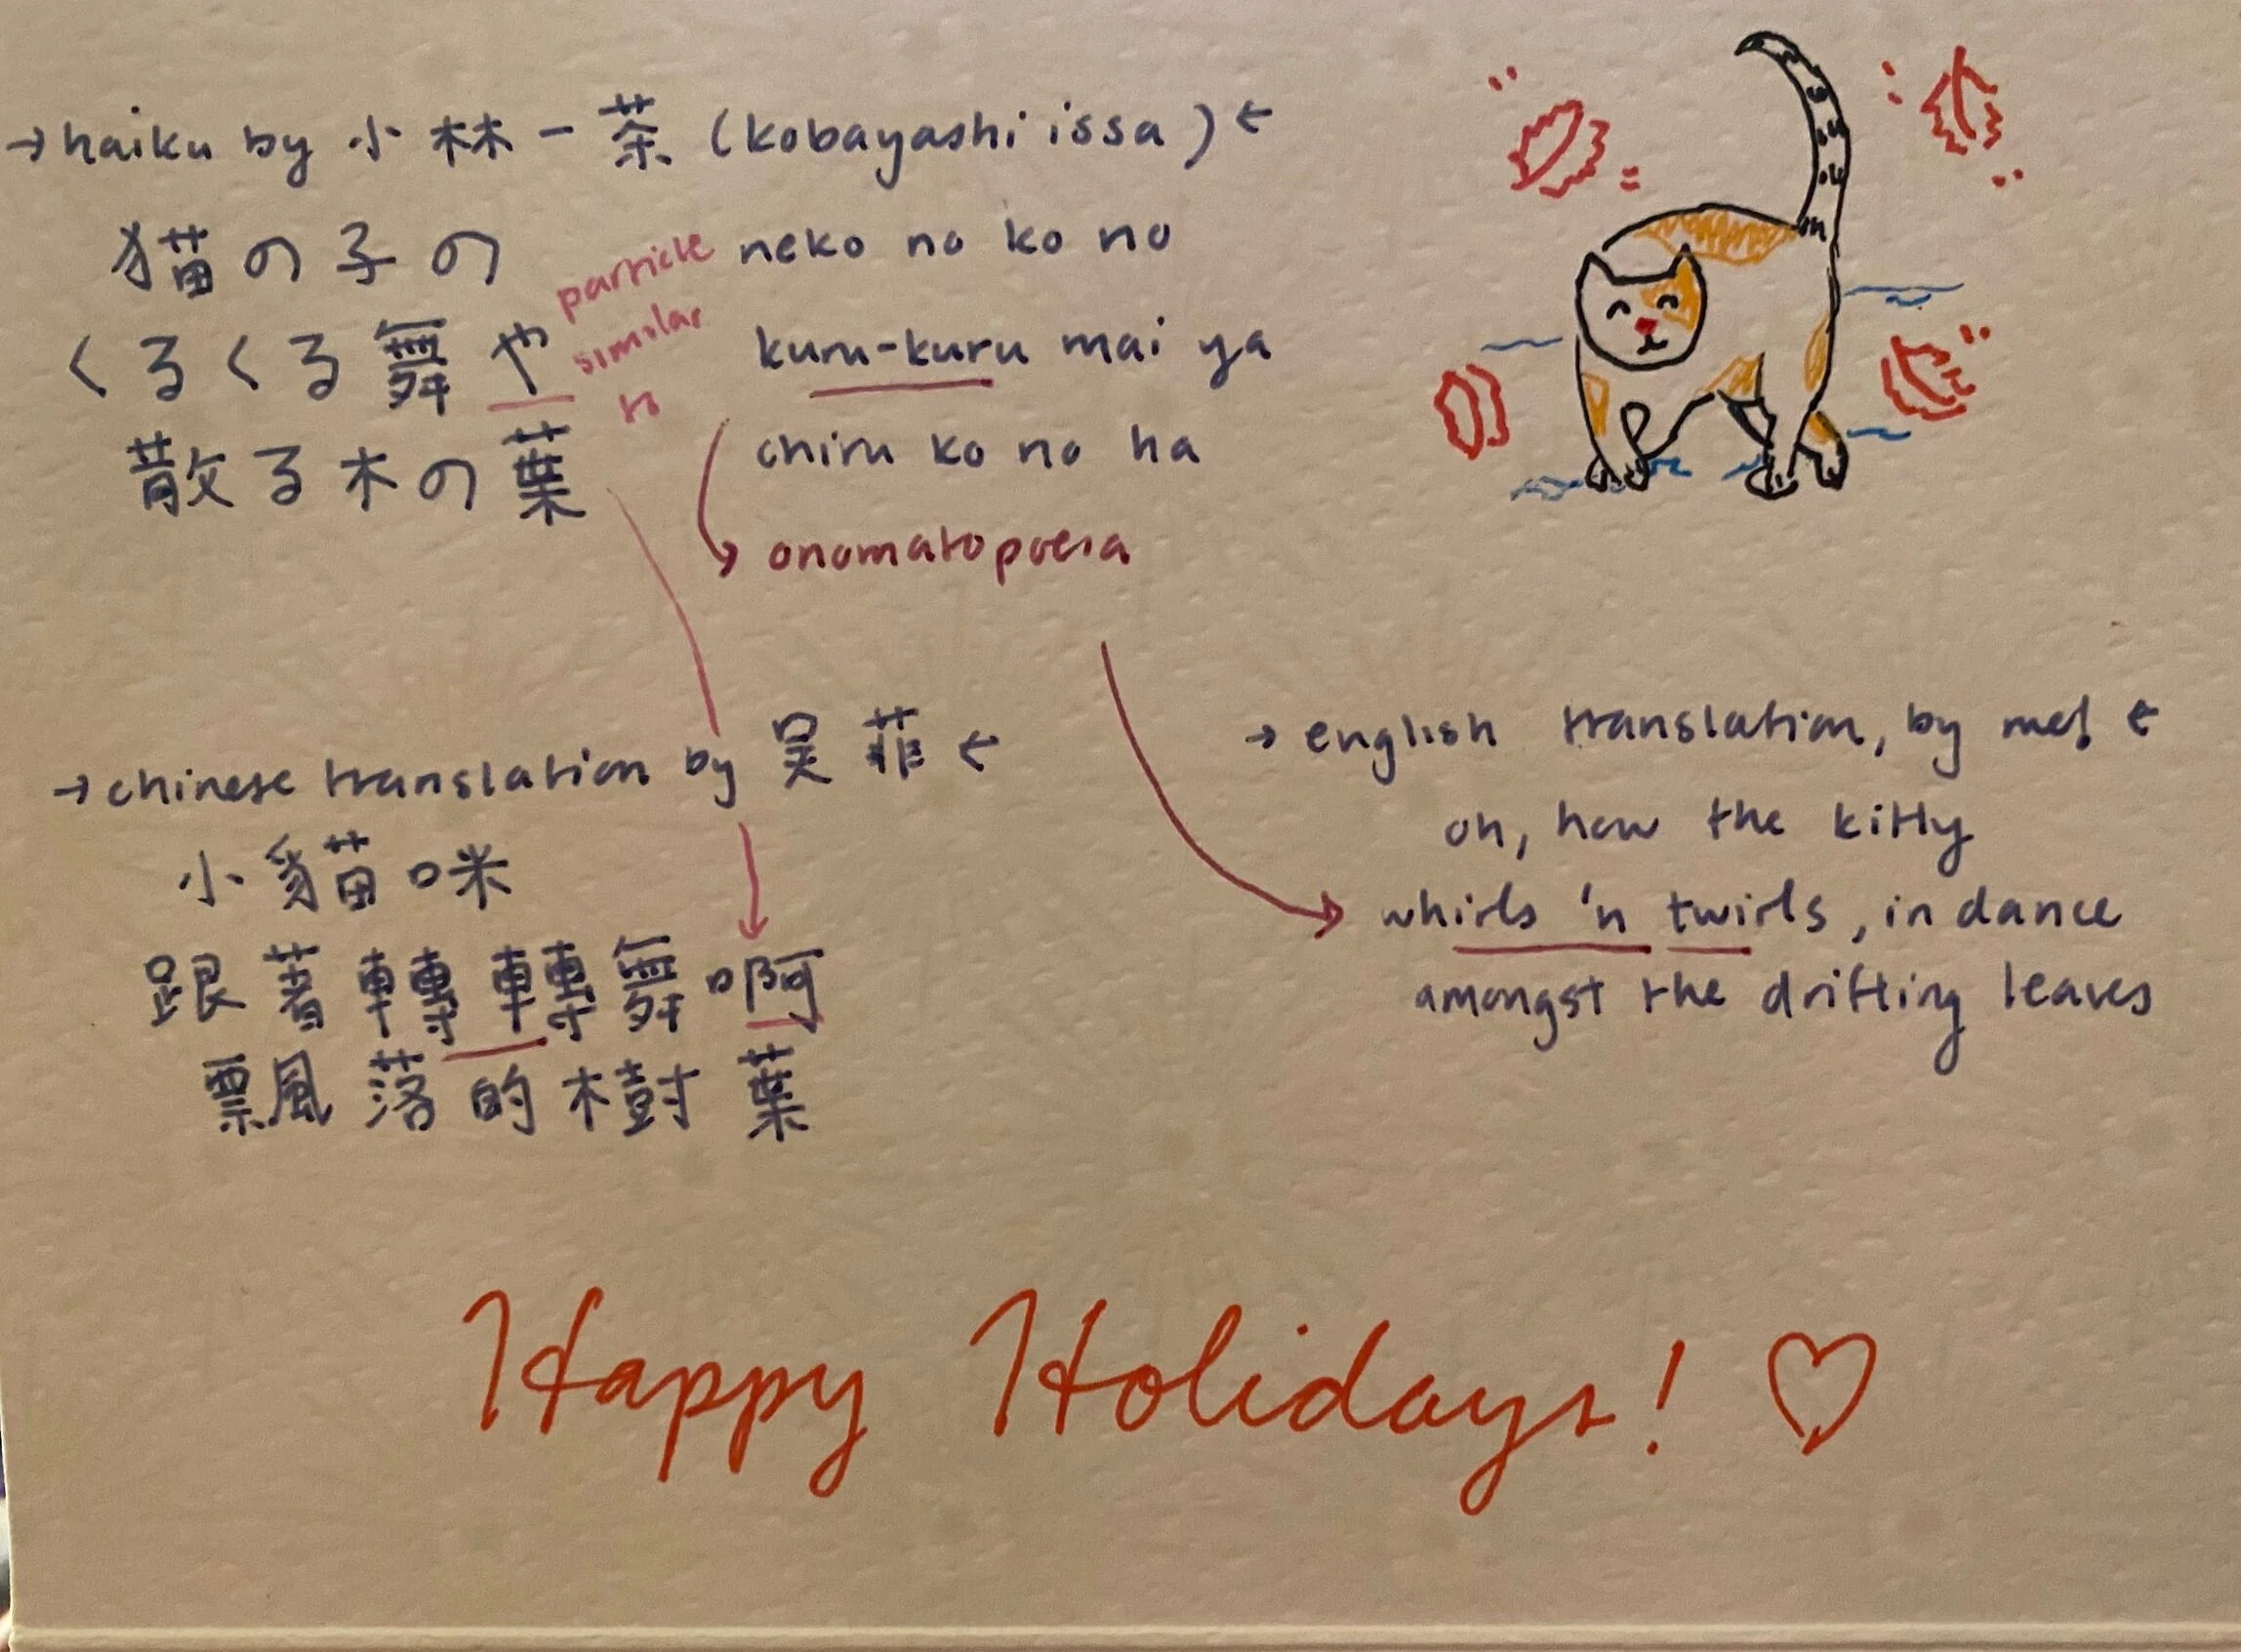 → haiku by 小林一茶 (kobayashi issa) ←
猫の子の
くるくる舞や
散る木の葉
particle
similar
to
neko no ko no
kuru-kuru mai ya
chiru ko no ha
onomatopoeia
→ chinese translation by 吴菲 ←
小貓咪
跟著轉轉舞啊
飄落的樹葉
→ english translation, by me! ←
oh, how the kitty
whirls 'n twirls, in dance
amongst the drifting leaves
Happy Holidays! ♡